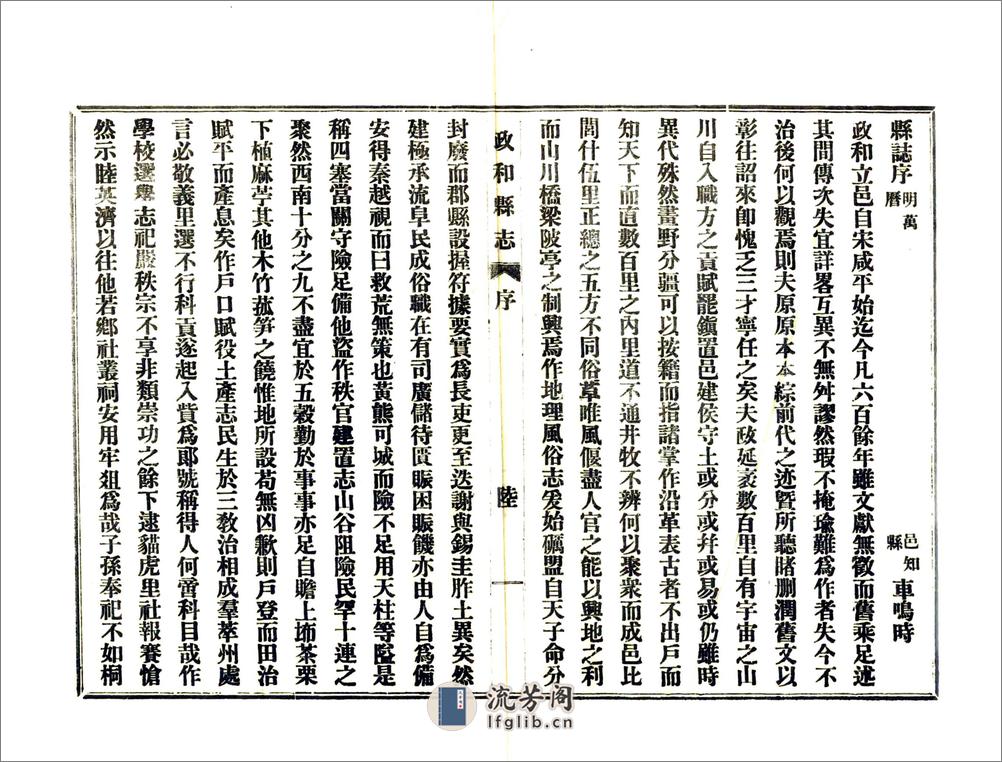 縣誌序明萬曆 邑知縣車鳴時
政和立邑自宋咸平始迄今凡六百餘年雖文獻無徵而舊乘足述
其間傳次失宜詳畧互異不無舛謬然瑕不掩瑜難爲作者失今不
治後何以觀焉則夫原原本本綜前代之迹曁所聽睹刪潤舊文以
彰往詔來卽愧乏三才寧任之矣夫政延袤數百里自有宇宙之山
川自入職方之貢賦罷鎭置邑建侯守土或分或幷或易或仍雖時
異代殊然畫野分疆可以按籍而指諸掌作沿革表古者不出戶而
知天下而直數百里之內里道不通井牧不辨何以聚衆而成邑比
閭什伍里正總之五方不同俗草唯風偃盡人官之能以興地之利
而山川橋梁陂亭之制興焉作地理風俗志爰始礪盟自天子命分
政和縣志 序 陸 一
封廢而郡縣設握符據要實爲長吏更至迭謝與錫圭胙土異矣然
建極承流阜民成俗職在有司廣儲待匱賑困賑饑亦由人自爲備
安得秦越視而曰救荒無策也黃熊可城而險不足用天柱等隘是
稱四塞當關守險足備他盜作秩官建置志山谷阻險民罕十連之
聚然西南十分之九不盡宜於五穀勤於事事亦足自贍上埽茶栗
下植麻苧其他木竹菰笋之饒惟地所設苟無凶歉則戶登而田治
賦平而產息矣作戶口賦役土產志民生於三教治相成羣萃州處
言必敬義里選不行科貢遂起入貲爲郞號稱得人何啻科目哉作
學校選舉志祀嚴秩宗不享非類崇功之餘下逮貓虎里社報賽愴
然示睦英濟以往他若鄉社叢祠安用牢俎爲哉子孫奉祀不如桐
流芳阁
lfglib.cn